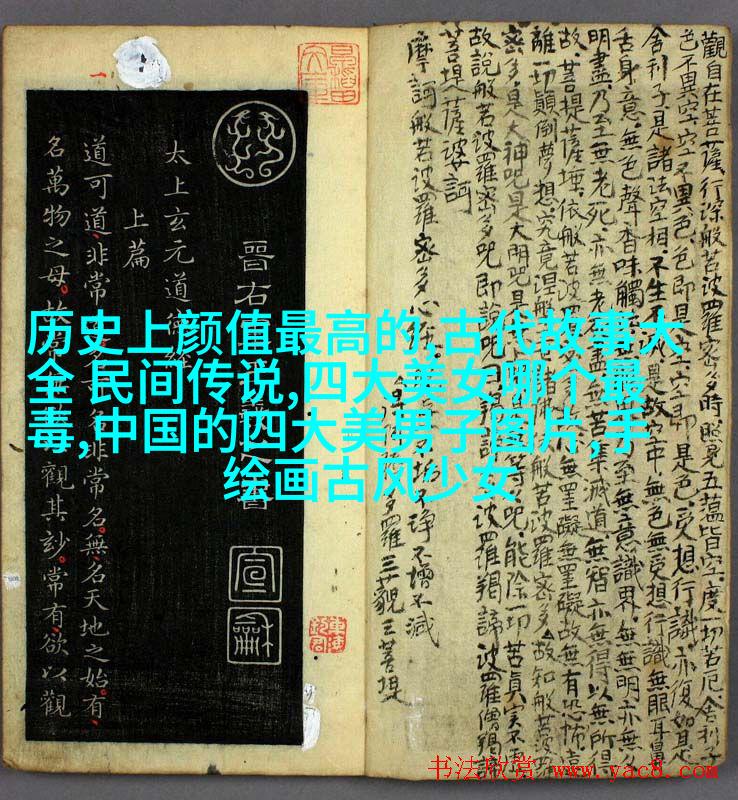 历史上颜值最高的,古代故事大
全 民间传说,四大美女哪个最
毒,中国的四大美男子图片,手
绘画古风少女
觀自在菩薩行深般若波羅蜜多時照見五蘊皆空度一切苦厄舍利子
色不異空空不異色色即是空空即是色受想行識亦復如是
舍利子是諸法空相不生不是故空中無色無受想行識無眼耳鼻
舌身意無色聲香味觸至無意識界無無明亦無
明盡乃至無老死亦無老盡無苦集滅道無智亦無得以無所得
故菩提薩埵依般若波罣礙無罣礙故無有恐怖遠
離一切顛倒夢想究竟涅槃羅密多故知般若波
密多是大神咒是大明咒是等咒能除一切苦真實不
故說般若波羅密多咒即說咒曰揭波羅揭諦波羅僧揭諦
菩提薩婆訶
摩訶般若波羅密多心經
不淨不增不減
多羅三藐三菩提
晉右書
太上玄元道德經
上篇
道可道非常名非常名無名天地之始有
名萬物之母故常觀其妙常有欲以觀
宣
龢
书法欣赏 www.yac8.com